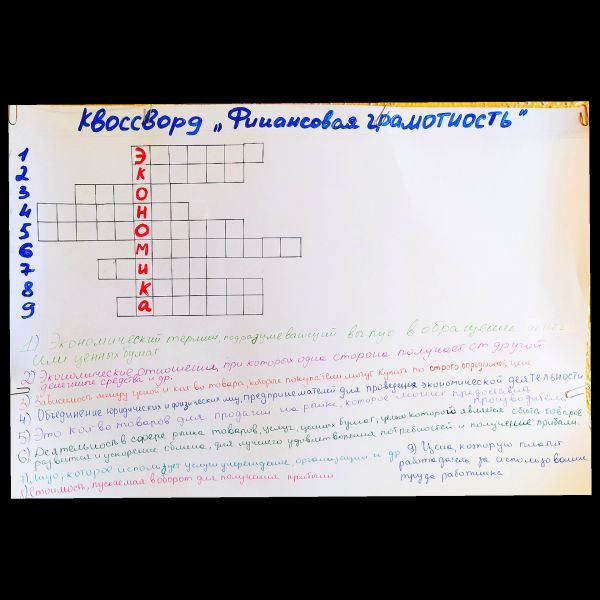 Квоссворд „Финансовая грамотность"
1 Э
2 К
3 О
4 Н
5 О
6 М
7 И
8 К
9 а
1) Экономический термин, подразумевающий выпус в обращение денег
или ценных бумаг
2) Экономические отношения, при которых одна сторона получает от другой
денежные средства и др.
3) Зависимость между ценой и кол-во товара, которые покупатели могут купить по строго определённой цене
4) Объединение юридических и физических лиц, предпринимателей для проведения экономической деятельности
5) Это кол-во товаров для продажи на рынке, которое могут предоставить
производители
6) Деятельность в сфере рынка товаров, услуг, ценных бумаг, целью которой является сбыта товаров
развития и ускорение обмена, для лучшего удовлетворения потребностей и получение прибыли.
7) лицо, которое использует услуги учреждение, организации и др
8) Стоимость, пускаемая в оборот для получения прибыли
9) Цена, которую платит
работадатель за использование
труда работника